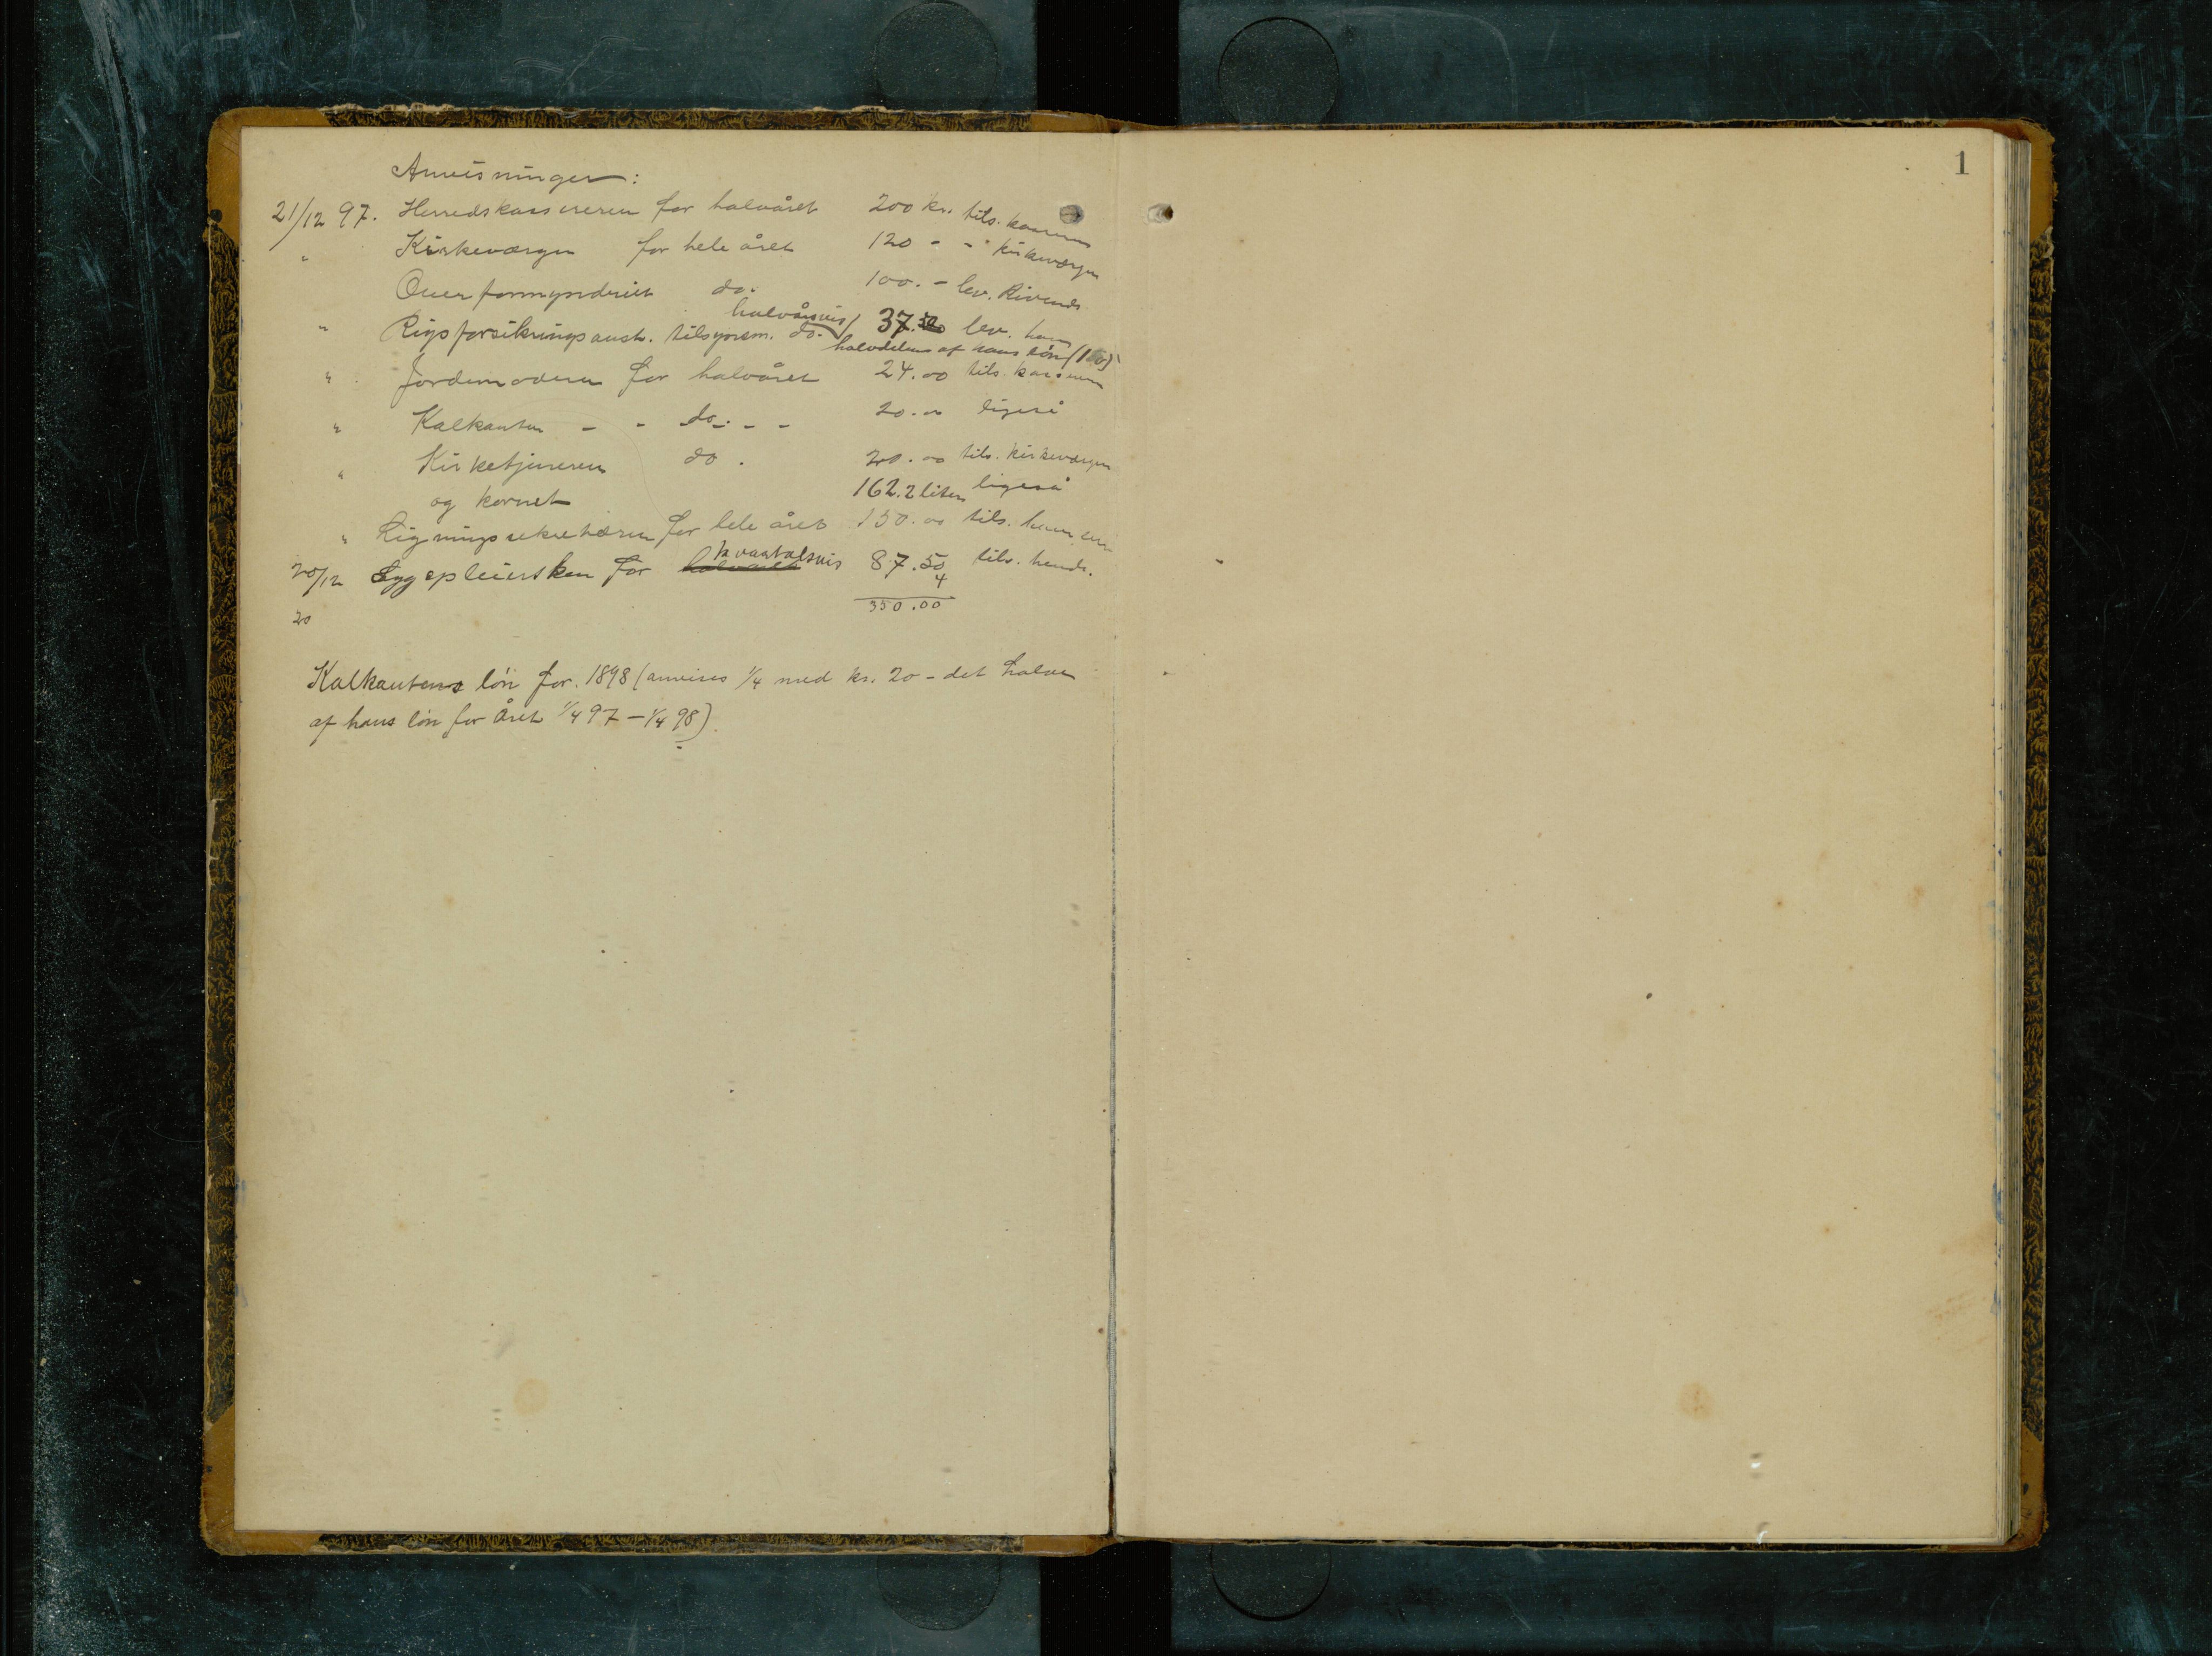 1
Anvisninger:
21/12 97. Herredskassereren for halvåret 200 kr. tils. kasseren
" Kirkeværgen for hele året 120 - - " kirkeværgen
Overformynderiet do. 100. - lev. Rivends
halvårsvis/
" Rigsforsikringsanst. tilsynsm. do. 37.50 lev. ham
halvdelen af hans løn
" Jordemoderen for halvåret 24.00 tils. kasseren
" Kalkanten - - do. - - 20.00 ligeså
" Kirketjeneren do. 20.00 tils. kirkeværgen
og kornet 162.2 liter ligeså
" Ligningssekretæren for hele året 150.00 tils. ham
kvartalsvis
20/12 Sygepleiersken for halvåret 87.50 tils. hende.
4
350.00
20
Kalkantens løn for. 1898 (anvises 1/4 med kr. 20 - det halve
af hans løn for Året 1/4 97 - 1/4 98).